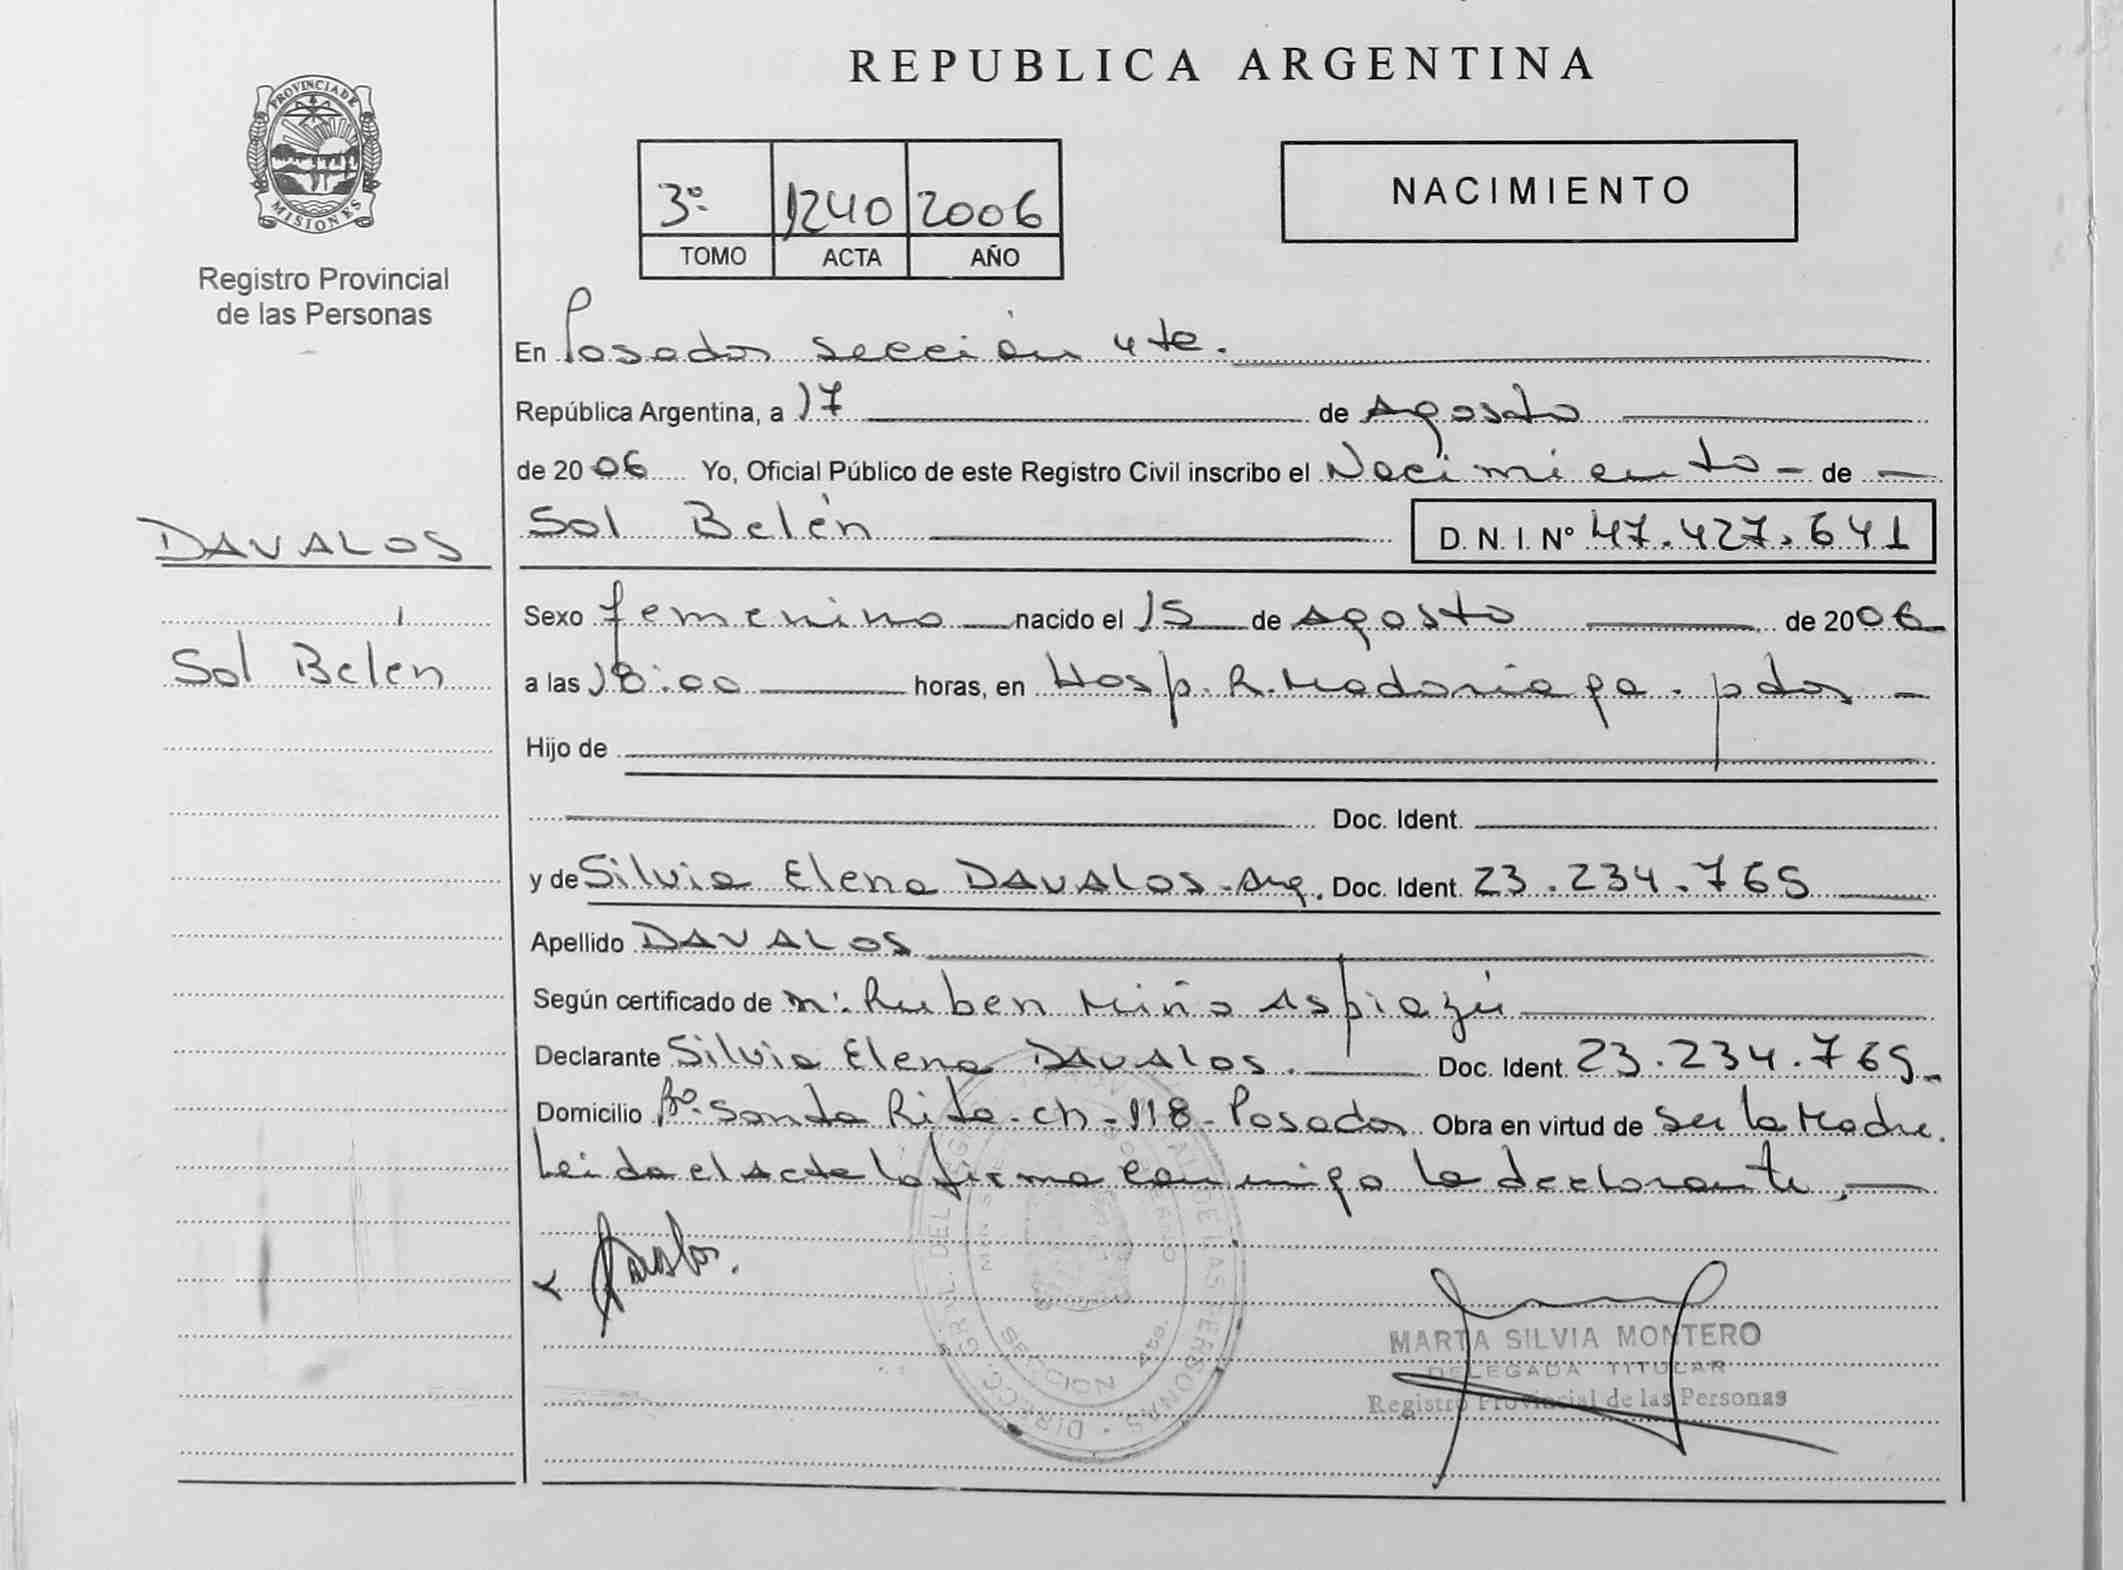 REPUBLICA ARGENTINA
PROVINCIA DE
MISIONES
Registro Provincial
de las Personas
3º 1240 2006
TOMO ACTA AÑO
NACIMIENTO
En Posadas sección 4ta.
República Argentina, a 17 de Agosto
de 2006 Yo, Oficial Público de este Registro Civil inscribo el Nacimiento - de -
Sol Belén D. N. I. Nº 47.427.641
DAVALOS
Sol Belén
Sexo femenino nacido el 15 de Agosto de 2006
a las 18:00 horas, en Hosp. R. Madariaga - pdas -
Hijo de
Doc. Ident.
y de Silvia Elena DAVALOS - Arg. Doc. Ident. 23.234.765
Apellido DAVALOS
Según certificado de m: Ruben Miño Aspiazú
Declarante Silvia Elena DAVALOS. Doc. Ident. 23.234.765-
Domicilio Bº. Santa Rita - ch - 118 - Posadas Obra en virtud de ser la Madre.
Leida el acta la firma conmigo la declarante,
Davalos.
MARTA SILVIA MONTERO
DELEGADA TITULAR
Registro Provincial de las Personas